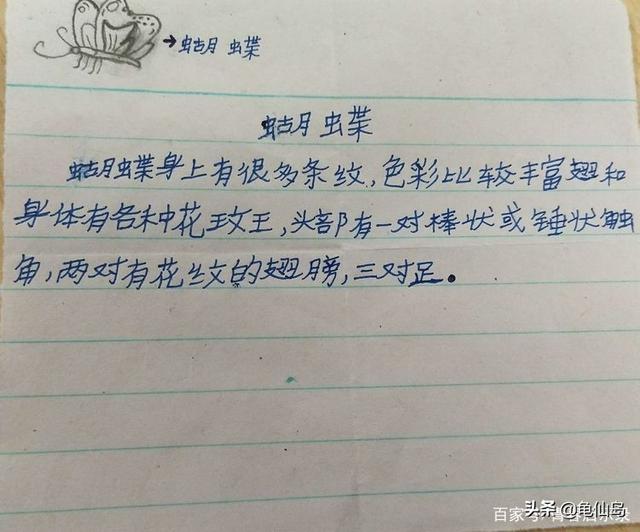 →蝴蝶
蝴蝶
蝴蝶身上有很多条纹,色彩比较丰富翅和
身体有各种花玟王,头部有一对棒状或锤状触
角,两对有花纹的翅膀,三对足。
头条@龟仙岛